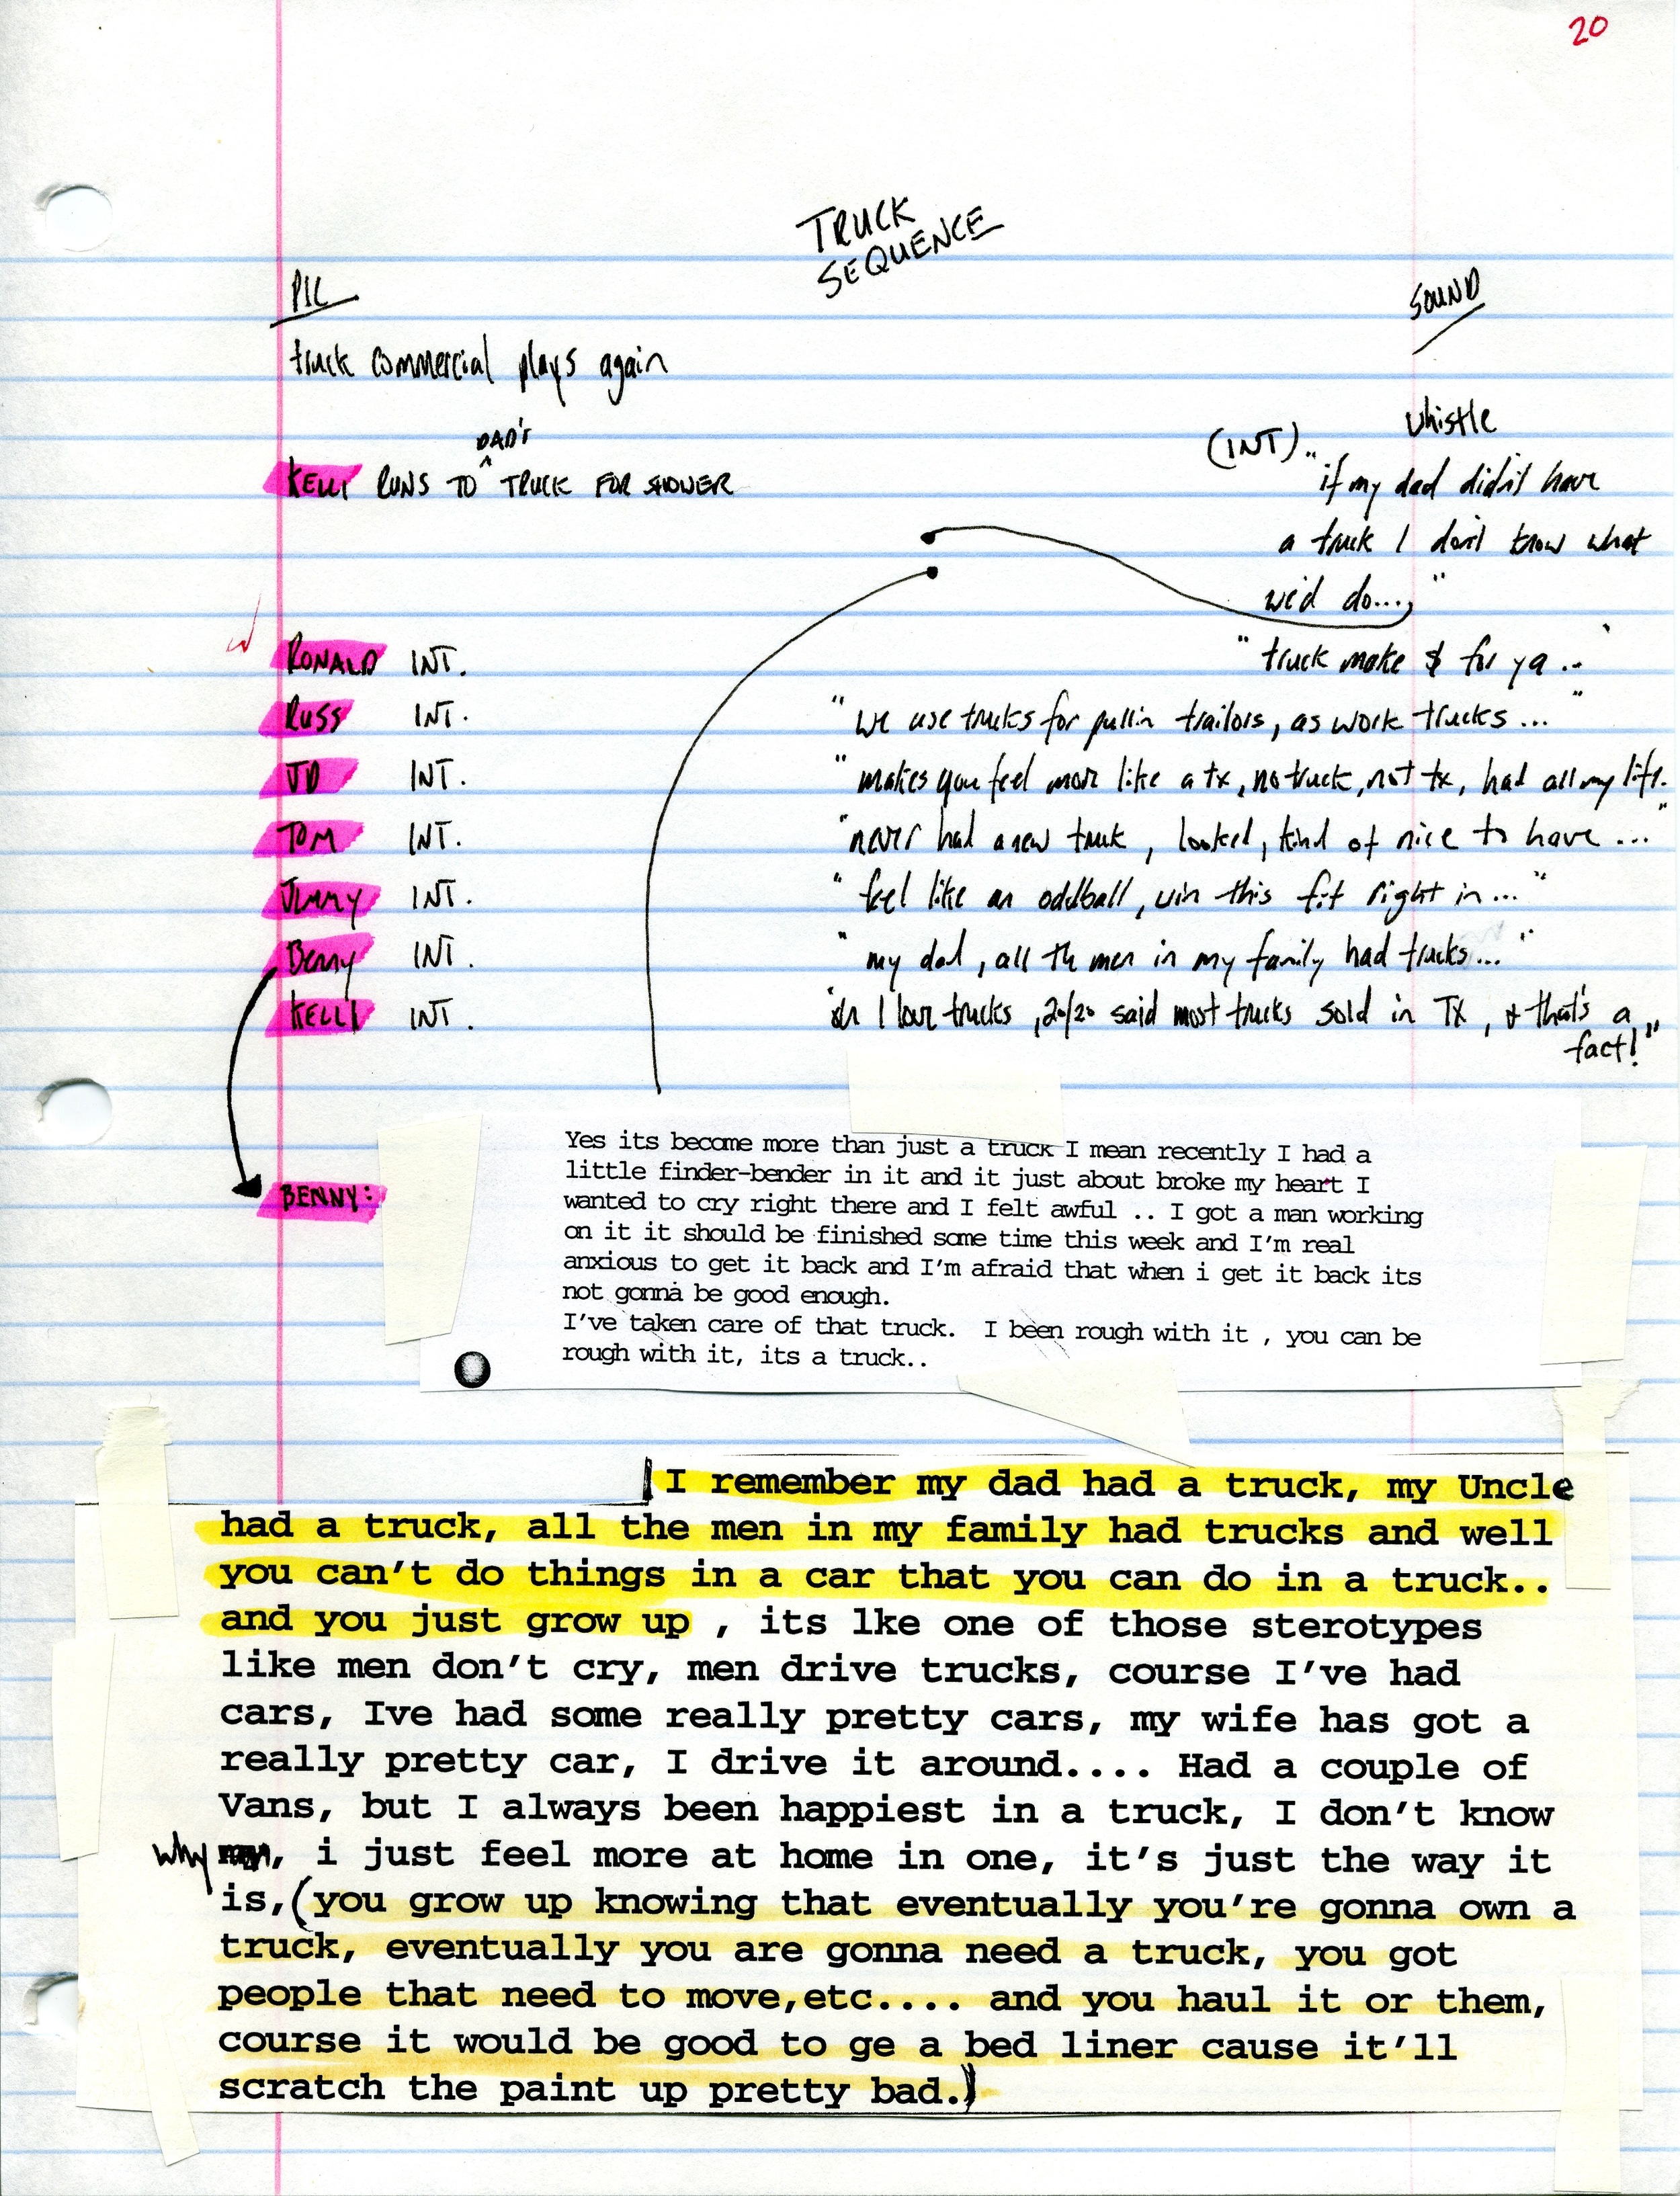 20
TRUCK
SEQUENCE
PIC
SOUND
truck commercial plays again
whistle
DAD'S
KELLI RUNS TO ^ TRUCK FOR SHOWER
(INT)..
"if my dad didn't have
a truck I don't know what
we'd do...."
RONALD INT. "truck make $ for ya..."
RUSS INT. "we use trucks for pullin trailors, as work trucks..."
JD INT. "makes you feel more like a tx, no truck, not tx, had all my life."
TOM INT. "never had a new truck, looked, kind of nice to have..."
JIMMY INT. "feel like an oddball, win this fit right in..."
Benny INT. "my dad, all the men in my family had trucks..."
KELLI INT. I love trucks, 20/20 said most trucks sold in TX, & that's a
fact!"
BENNY:
Yes its become more than just a truck I mean recently I had a
little finder-bender in it and it just about broke my heart I
wanted to cry right there and I felt awful .. I got a man working
on it it should be finished some time this week and I'm real
anxious to get it back and I'm afraid that when i get it back its
not gonna be good enough.
I've taken care of that truck. I been rough with it , you can be
rough with it, its a truck..
I remember my dad had a truck, my Uncle
had a truck, all the men in my family had trucks and well
you can't do things in a car that you can do in a truck..
and you just grow up , its lke one of those sterotypes
like men don't cry, men drive trucks, course I've had
cars, Ive had some really pretty cars, my wife has got a
really pretty car, I drive it around.... Had a couple of
Vans, but I always been happiest in a truck, I don't know
why , i just feel more at home in one, it's just the way it
is,(you grow up knowing that eventually you're gonna own a
truck, eventually you are gonna need a truck, you got
people that need to move,etc.... and you haul it or them,
course it would be good to ge a bed liner cause it'll
scratch the paint up pretty bad.)